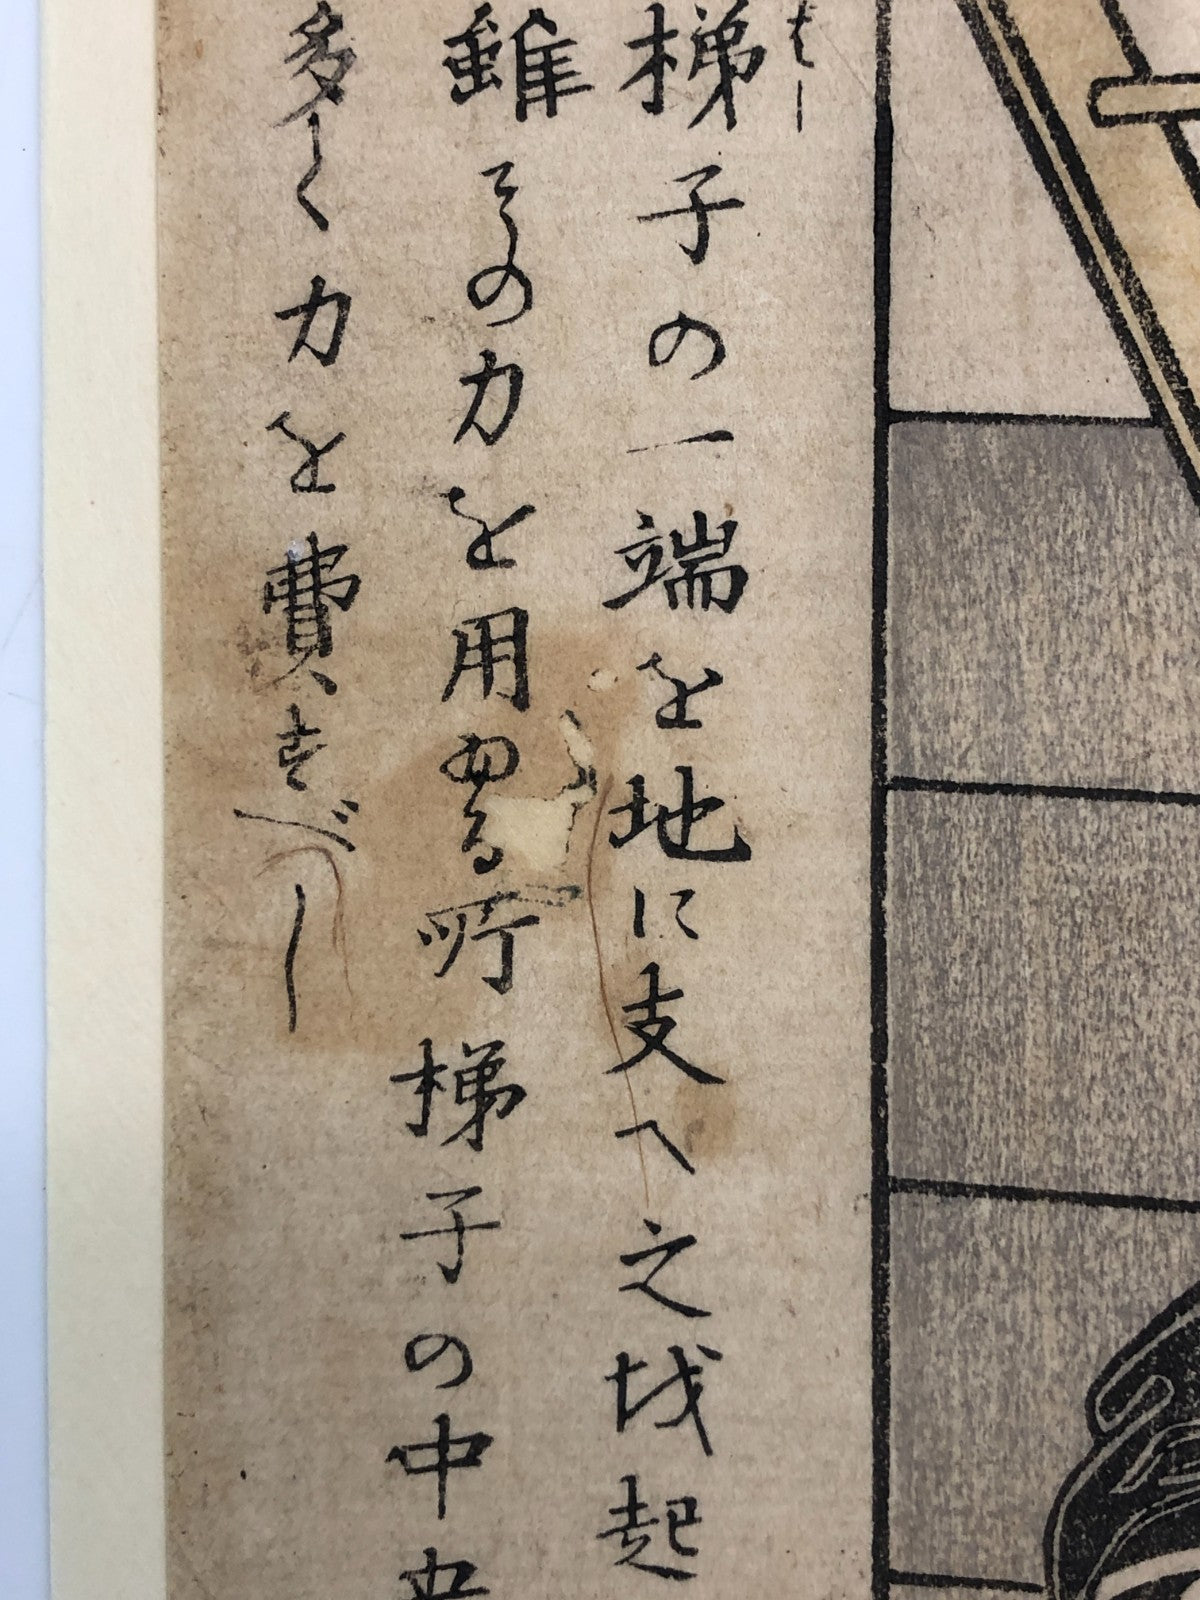 はし
梯子の一端を地に支へ之を起
雖その力を用ゆる所梯子の中央
多く力を費すべし